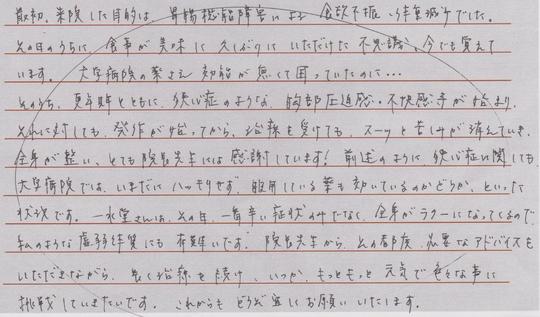 最初、来院した目的は、胃腸機能障害による食欲不振、体重減少でした。
その日のうちに、食事が美味しく久しぶりにいただけた不思議、今でも覚えて
います。大学病院の薬さえ効能が無くて困っていたのに…
そのうち、更年期とともに、狭心症のような、胸部圧迫感・不快感等が始まり、
それに対しても、発作が始ってから、治療を受けても、スーッと苦しみが消えていき、
全身が整い、とても院長先生には感謝しています! 前述のように、狭心症に関しても
大学病院では、いまだにハッキリせず、服用している薬も効いているのかどうか、といった
状況です。一水堂さんは、その日、一番辛い症状のみでなく、全身がラクーになってくるので、
私のような虚弱体質にも有難いです。院長先生から、その都度、必要なアドバイスも
いただきながら、長く治療を続け、いつか、もっともっと元気で色々な事に
挑戦していきたいです。これからもどうぞ宜しくお願いいたします。